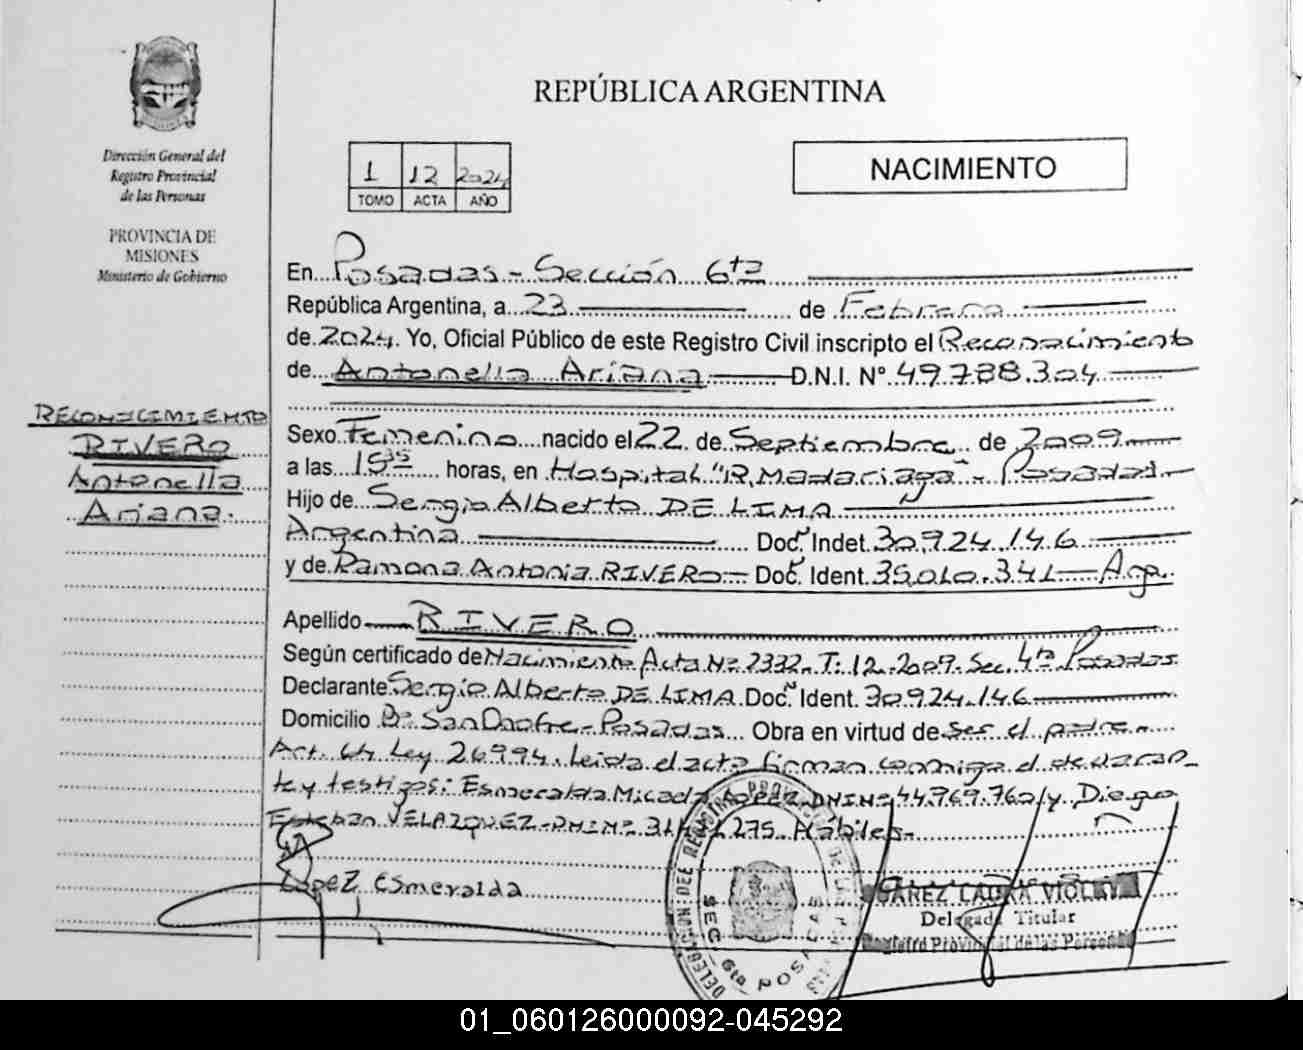 Dirección General del
Registro Provincial
de las Personas
PROVINCIA DE
MISIONES
Ministerio de Gobierno
RECONOCIMIENTO
RIVERO
Antonella
Ariana.
REPÚBLICA ARGENTINA
1 12 2024
TOMO ACTA AÑO
NACIMIENTO
En Posadas - Sección 6ta
República Argentina, a 23 de Febrero
de 2024. Yo, Oficial Público de este Registro Civil inscripto el Reconocimiento
de Antonella Ariana D.N.I. N° 49.788.304
Sexo Femenino nacido el 22 de Septiembre de 2009
a las horas, en Hospital "R. Madariaga" - Posadas.
Hijo de Sergio Alberto DE LIMA
Argentina Doc. Indet. 30.924.146
y de Ramona Antonia RIVERO Doc. Ident. 35.010.341 Arg.
Apellido RIVERO
Según certificado de Nacimiento Acta N° 2332. T: 12. 2009. Sec. 4ta Posadas.
Declarante Sergio Alberto DE LIMA Doc. Ident. 30.924.146
Domicilio B° San Onofre - Posadas Obra en virtud de ser el padre.
Art. Ley 26994. Leida el acta firman conmigo el declaran-
te y testigos: Esmeralda Micaela LOPEZ DNI N° 44.769.760 y Diego
Esteban VELAZQUEZ - DNI N° 275. Hábiles.
Lopez Esmeralda
DELEGACION DEL REGISTRO
SEC. 6ta POSADAS
LAURA
Delegada Titular
Registro Provincial de las Personas
01_060126000092-045292